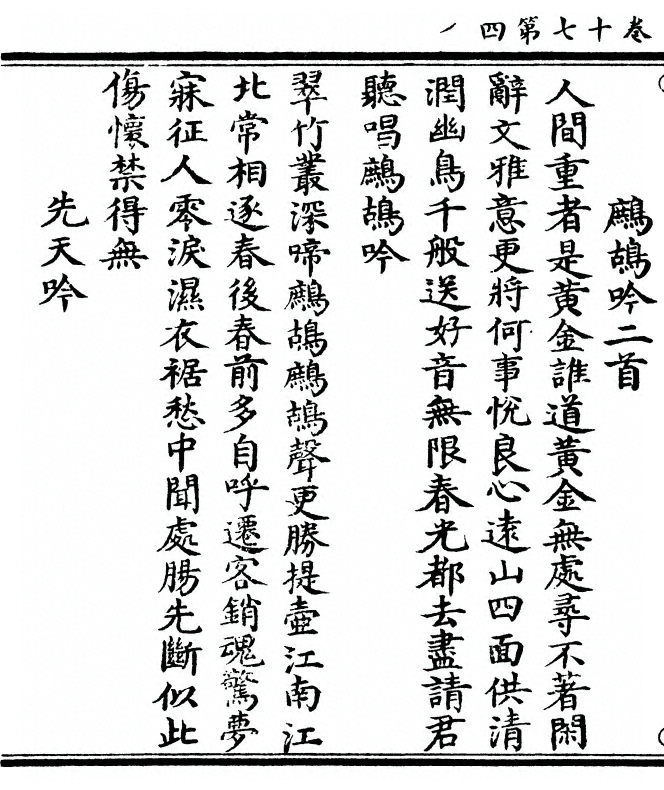 卷十七第四
鷓鴣吟二首
人間重者是黃金誰道黃金無處尋不著閑
辭文雅意更將何事悅良心逺山四面供清
潤幽鳥千般送好音無限春光都去盡請君
聽唱鷓鴣吟
翠竹叢深啼鷓鴣鷓鴣聲更勝提壺江南江
北常相逐春後春前多自呼遷客銷魂驚夢
寐征人零淚濕衣裾愁中聞處腸先斷似此
傷懷禁得無
先天吟